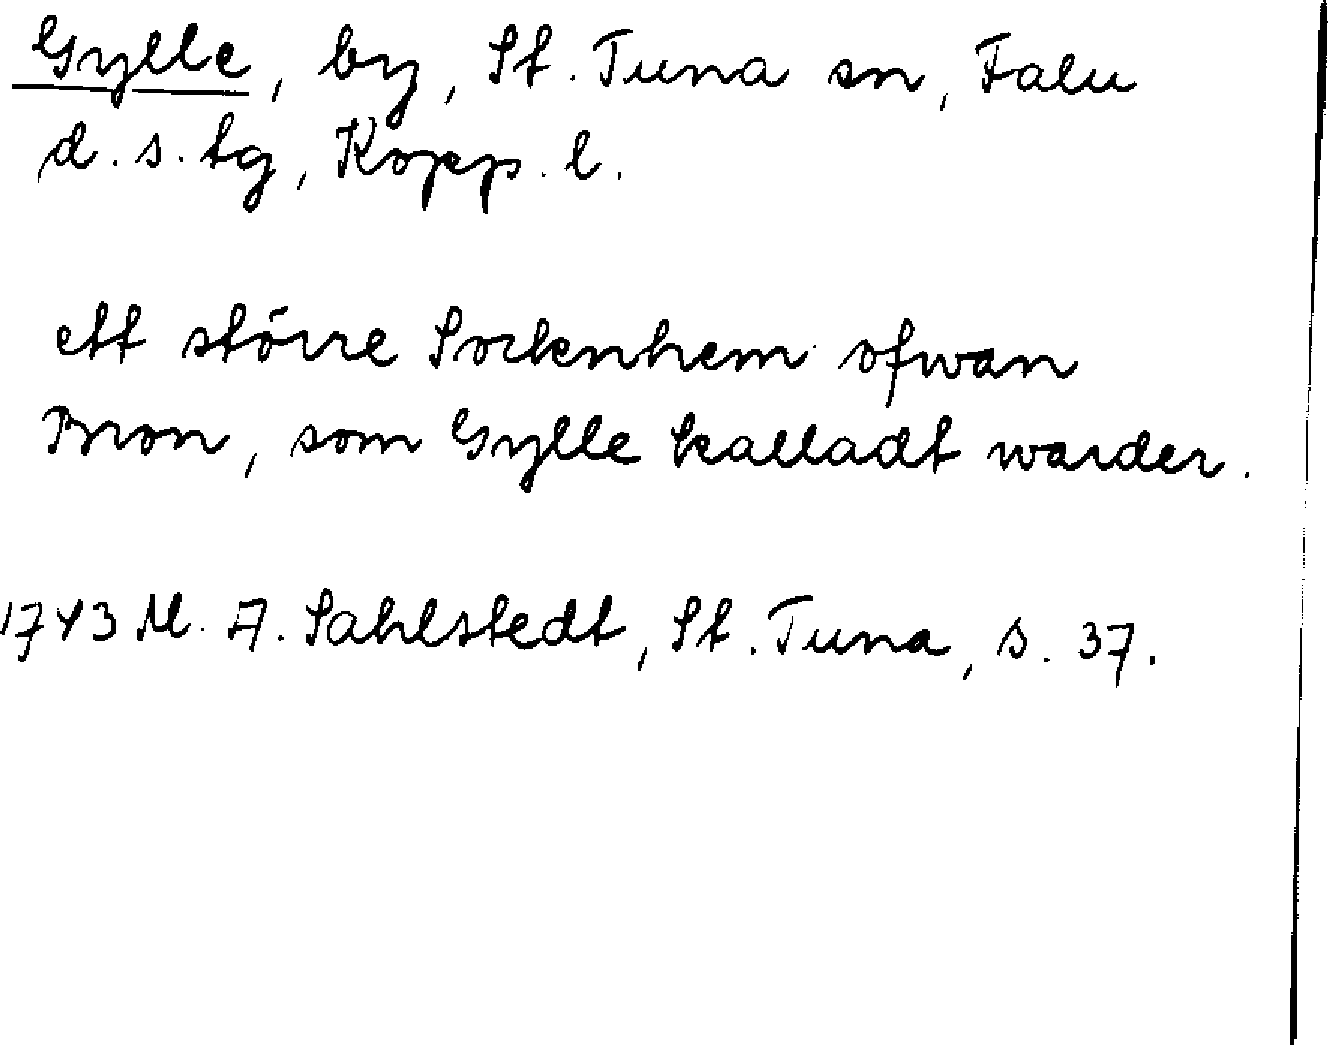 Gylle, by, St. Tuna sn, Falu
d. s. tg, Kopp. l.
ett större Sockenhem ofwan
Bron, som Gylle kalladt warder.
1743 M. A. Sahlstedt, St. Tuna, s. 37.